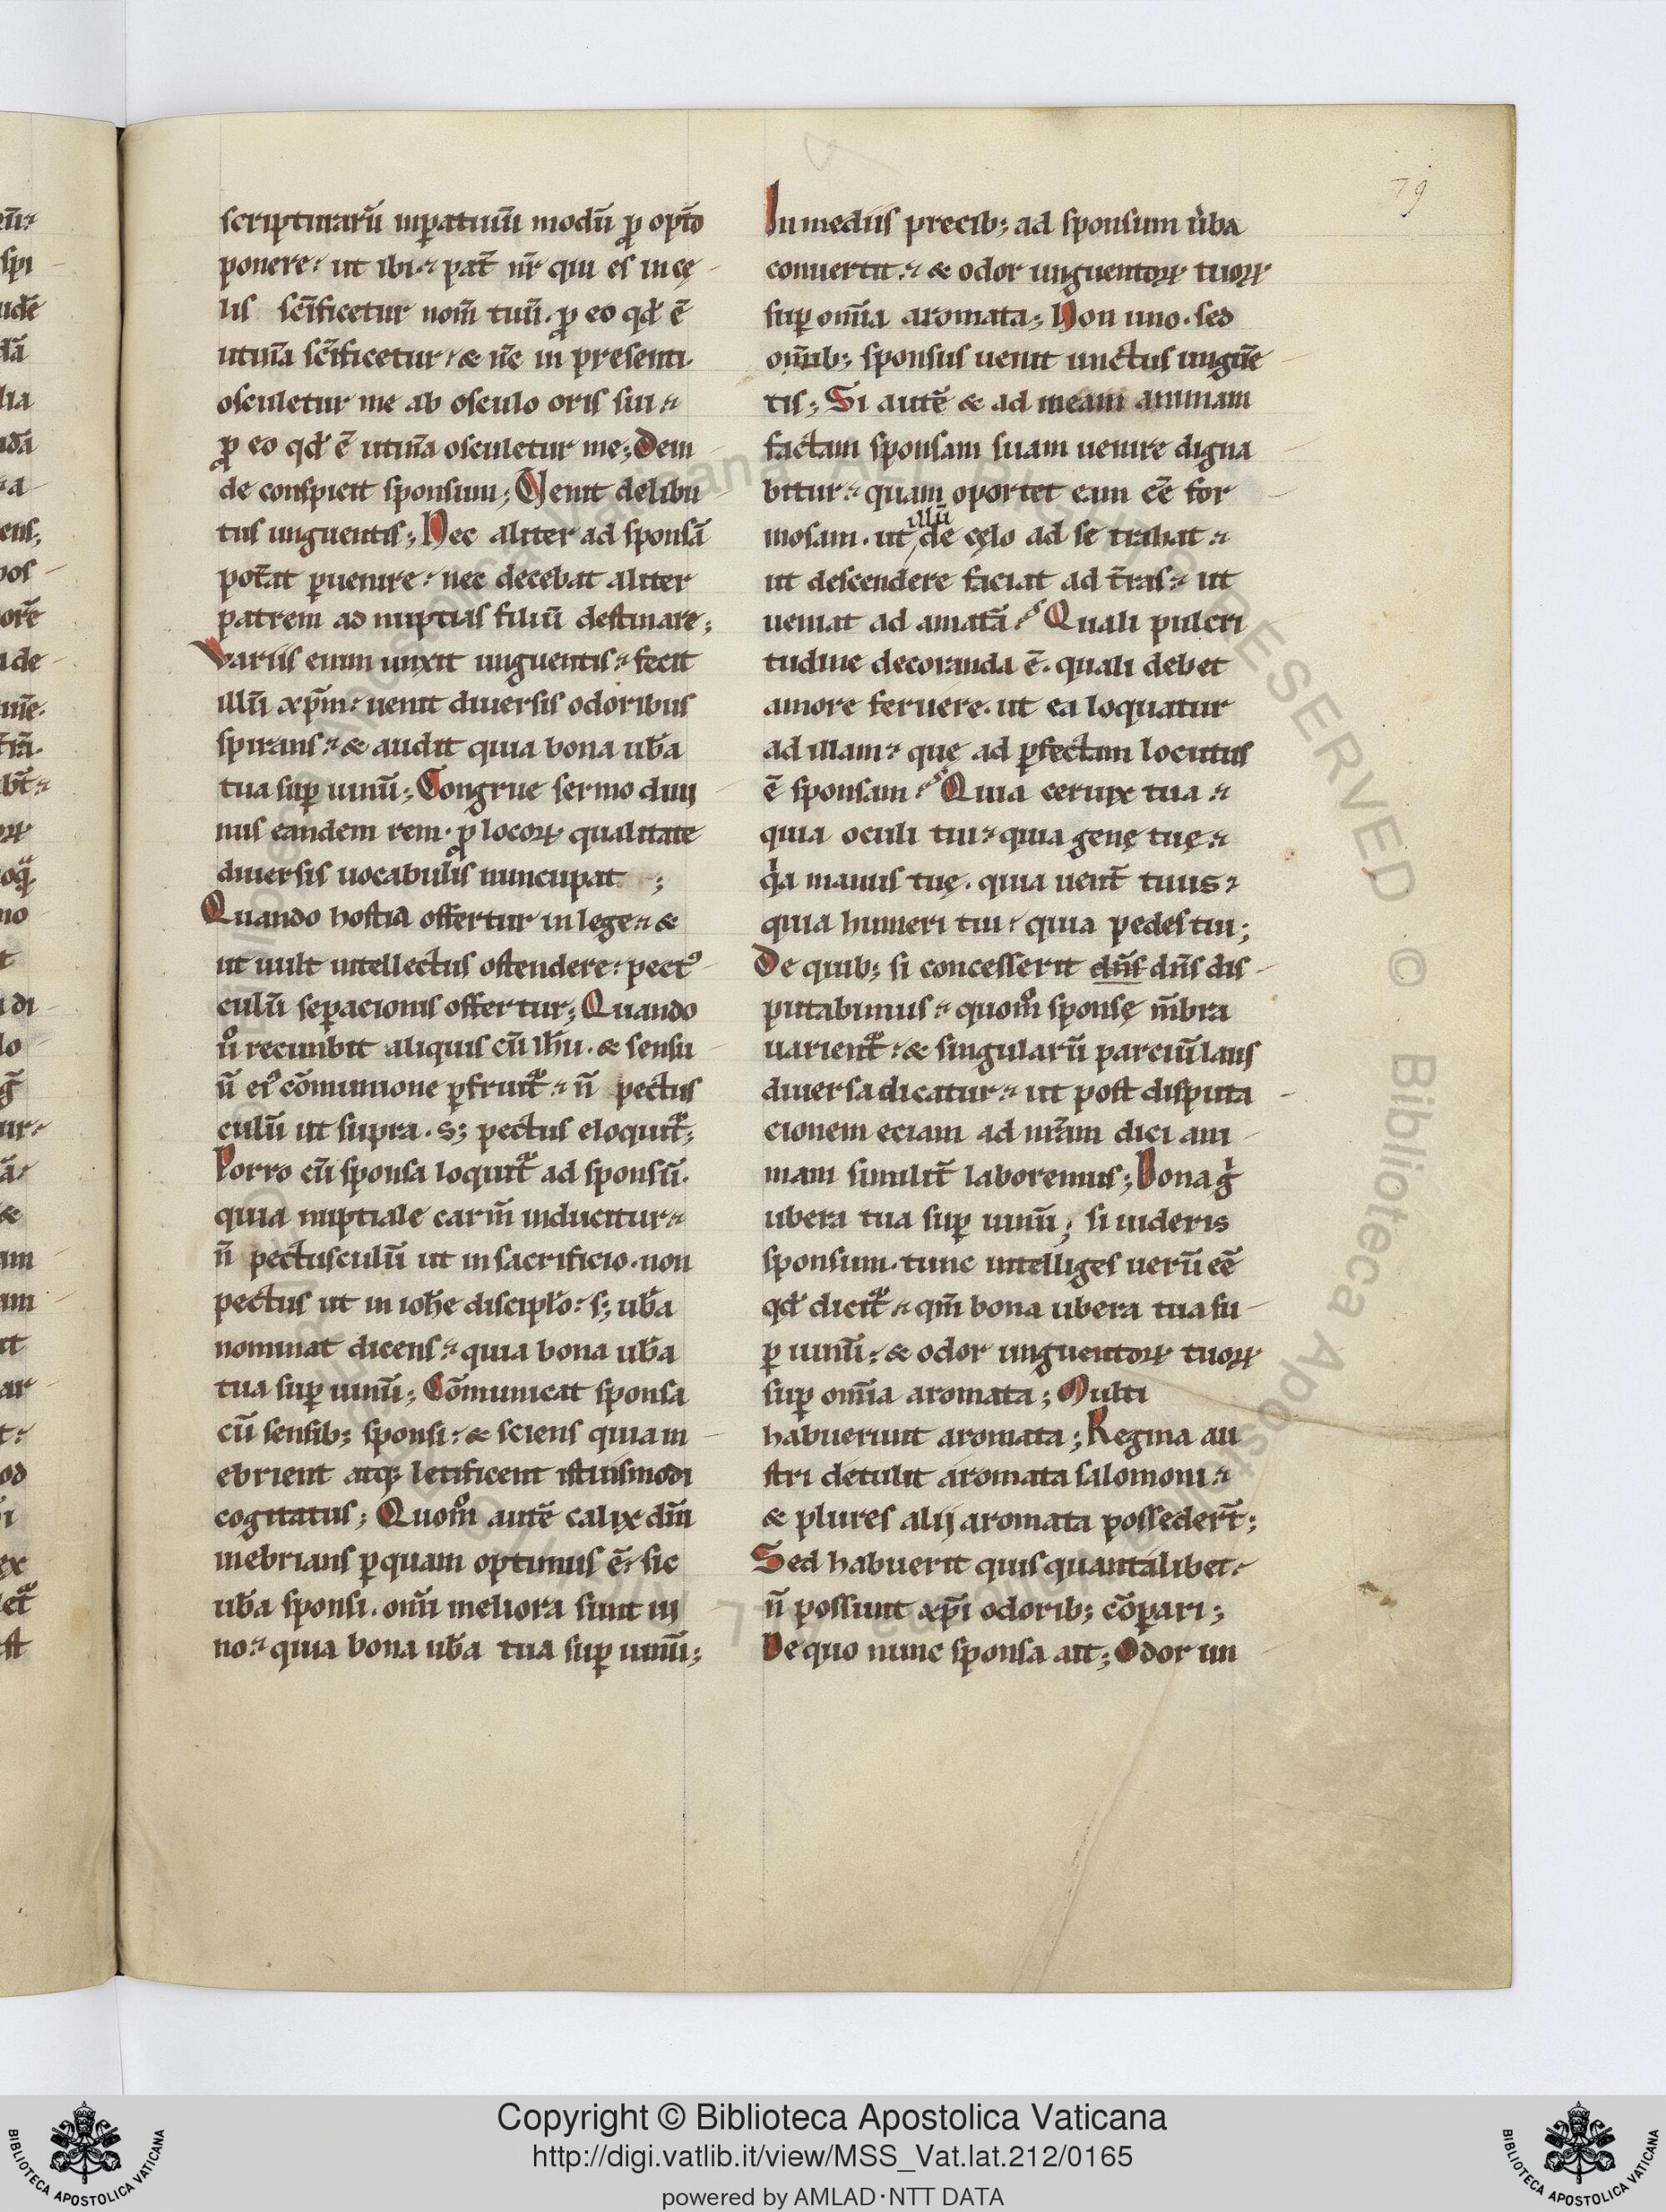 scripturarū inꝑatiuū modū ꝓ opt̄o
ponere ut ibi pat̄ nr̄ qui es in cę
lis sc̄ificetur nom̄ tuū. ꝓ eo qd̄ ē
utinā sc̄ificetur & nc̄ in presenti.
osculetur me ab osculo oris sui
ꝓ eo qd̄ ē utinā osculetur me; Dein
de conspicit sponsum; Uenit delibu
tus unguentis; Nec aliter ad sponsā
pot̄at ꝑuenire nec decebat aliter
patrem ad nuptias filiū destinare;
Variis enim unxit unguentis fecit
illū xp̄m uenit diuersis odoribus
spirans & audit quia bona ub̄a
tua suꝑ uinū; Congrue sermo diui
nus eandem rem. ꝓ locoꝝ qualitate
diuersis uocabulis nuncupat ;
Quando hostia offertur in lege &
ut uult intellectus ostendere pectꝰ
culū seꝑacionis offertur; Quando
uͦ recumbit aliquis cū ih̄u. & sensu
ū eiꝰ cōmunione ꝑfruit᷑ n̄ pectus
culū ut supra. s; pectus eloquit᷑;
Porro cū sponsa loquit᷑ ad sponsū.
quia nuptiale carm̄ inducitur
n̄ pectusculū ut in sacrificio. non
pectus ut in ioh̄e discipl̄o s; ub̄a
nominat dicens quia bona ub̄a
tua suꝑ uinū; Cōmunicat sponsa
cū sensib; sponsi & sciens quia in
ebrient atqꝫ letificent istiusmodi
cogitatus; Quom̊ autē calix dn̄i
inebrians ꝑquam optimus ē sic
ub̄a sponsi. omi meliora sunt ui
no quia bona ub̄a tua suꝑ uinū;
In mediis precib; ad sponsum uͥba
conuertit & odor unguentoꝝ tuoꝝ
suꝑ om̄ia aromata; Non uno. sed
om̄ib; sponsus uenit unctus unguē
tis; Si autē & ad meam animam
factam sponsam suam uenire digna
bitur quam oportet eam eē̄ for
mosam. ut de cęlo ad se trahat
illū
ut descendere faciat ad t̄ras ut
ueniat ad amatā Quali pulcri
tudine decoranda ē. quali debet
amore feruere. ut ea loquatur
ad illam quę ad ꝑfectam locutus
ē sponsam Quia ceruix tua
quia oculi tui quia genę tuę
qͥa manus tuę. quia uent̄ tuus
quia humeri tui quia pedes tui;
De quib; si concesserit dn̄s dn̄s dis
putabimus quom̊ sponsę m̄bra
uarient᷑ & singularū parciū laus
diuersa dicatur ut post disputa
cionem eciam ad nr̄am dici ani
mam similit̄ laboremus; Bona gͥ
ubera tua suꝑ uinū; si uideris
sponsum. tunc intelliges uerū eē̄
qd̄ dicit᷑ qm̄ bona ubera tua su
ꝑ uinū & odor unguentoꝝ tuoꝝ
suꝑ om̄ia aromata; Multi
habuerunt aromata; Regina au
stri detulit aromata salomoni
& plures alij aromata possedert̄;
Sed habuerit quis quantalibet
n̄ possunt xp̄i odorib; cōpari;
De quo nunc sponsa ait; Odor un
79
Copyright © Biblioteca Apostolica Vaticana
http://digi.vatlib.it/view/MSS_Vat.lat.212/0165
powered by AMLAD·NTT DATA
BIBLIOTECA APOSTOLICA VATICANA
BIBLIOTECA APOSTOLICA VATICANA